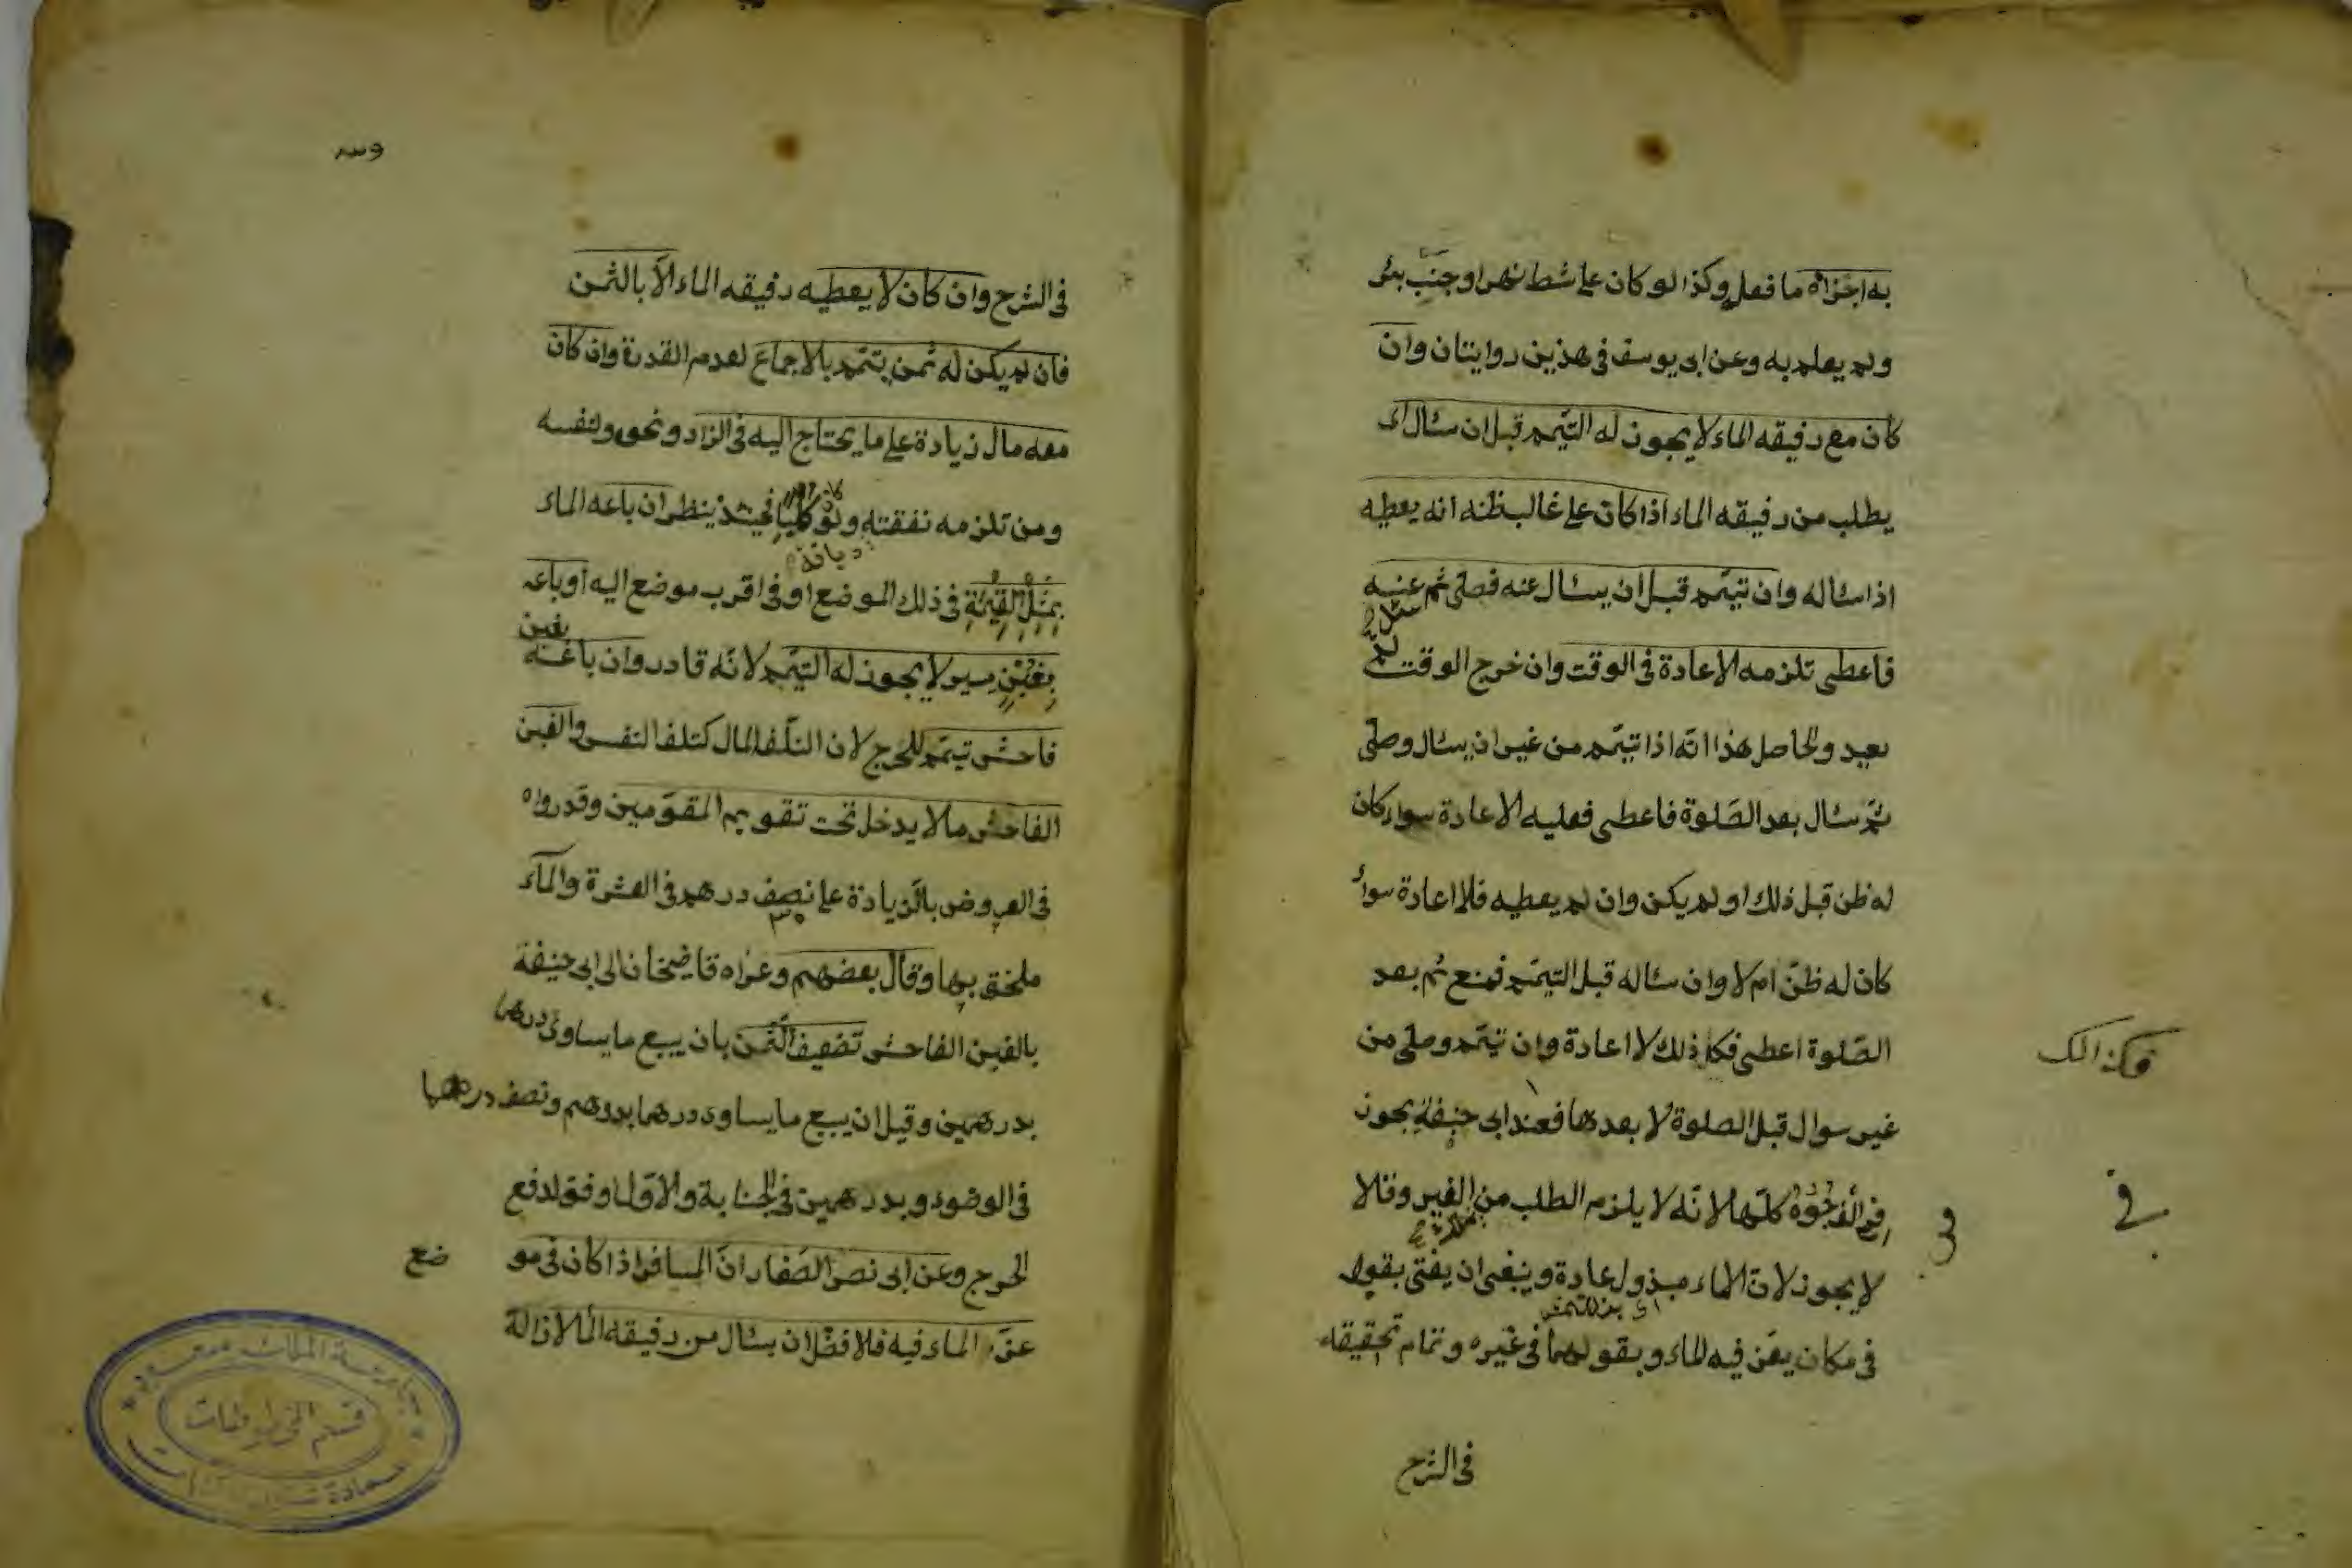 به اجزاه ما فعل وكذا لو كان على شط نهر او جنب بئر
ولم يعلم به وعن ابى يوسف فى هذين روايتان وان
كان مع رفيقه الماء لا يجوز له التيمم قبل ان سئال اى
يطلب من رفيقه الماء اذا كان على غالب ظنه انه يعطيه
اذا سئاله وان تيمم قبل ان يسئال عنه فصلى ثم عنه
سئل
فاعطى تلزمه الاعادة فى الوقت وان خرج الوقت لم
يعيد والحاصل هذا انه اذا تيمم من غير ان يسئال وصلى
ثم سئال بعد الصلوة فاعطى فعليه الاعادة سواء كان
له ظن قبل ذلك او لم يكن وان لم يعطيه فلا اعادة سواء
كان له ظن ام لا وان سئاله قبل التيمم فمنع ثم بعد
الصلوة اعطى فكل ذلك لا اعادة وان تيمم وصلى من
فكذالك
غير سوال قبل الصلوة لا بعدها فعند ابى حنيفة يجوز
فى الوجوه كلها لانه لا يلزم الطلب من الغير وقالا
فى
لا يجوز لان الماء مبذول عادة وينبغى ان يفتى بقوله
فى مكان يعز فيه الماء وبقولهما فى غيره وتمام تحقيقه
فى الشرح
فى الشرح وان كان لا يعطيه رفيقه الماء الا بالثمن
فان لم يكن له ثمن يتيمم بالاجماع لعدم القدرة وان كان
معه مال زيادة على ما يحتاج اليه فى الزاد ونحوه لنفسه
ومن تلزمه نفقته ولو كلبا فحينئذ ينظر ان باعه الماء
بمثل القيمة فى ذلك الموضع او فى اقرب موضع اليه او باعه
بغبن يسير لا يجوز له التيمم لانه قادر وان باعه
بغبن
فاحش تيمم للحرج لان التلف المال كتلف النفس والغبن
الفاحش ما لا يدخل تحت تقويم المقومين وقدروه
فى العروض بالزيادة على نصف درهم فى العشرة والماء
ملحق بها وقال بعضهم وعزاه قاضيخان الى ابى حنيفة
بالغبن الفاحش تضعيف الثمن بان يبيع ما يساوى درهما
بدرهمين وقيل ان يبيع ما يساوى درهما بدرهم ونصف درهما
فى الوضوء وبدرهمين فى الجنابة والاول اوفق لدفع
الحرج وعن ابى نصر الصفار ان المسافر اذا كان فى مو
ضع
عز الماء فيه فلافضل ان يسئال من رفيقه الماء لازالة
جامعة الملك سعود
قسم المخطوطات